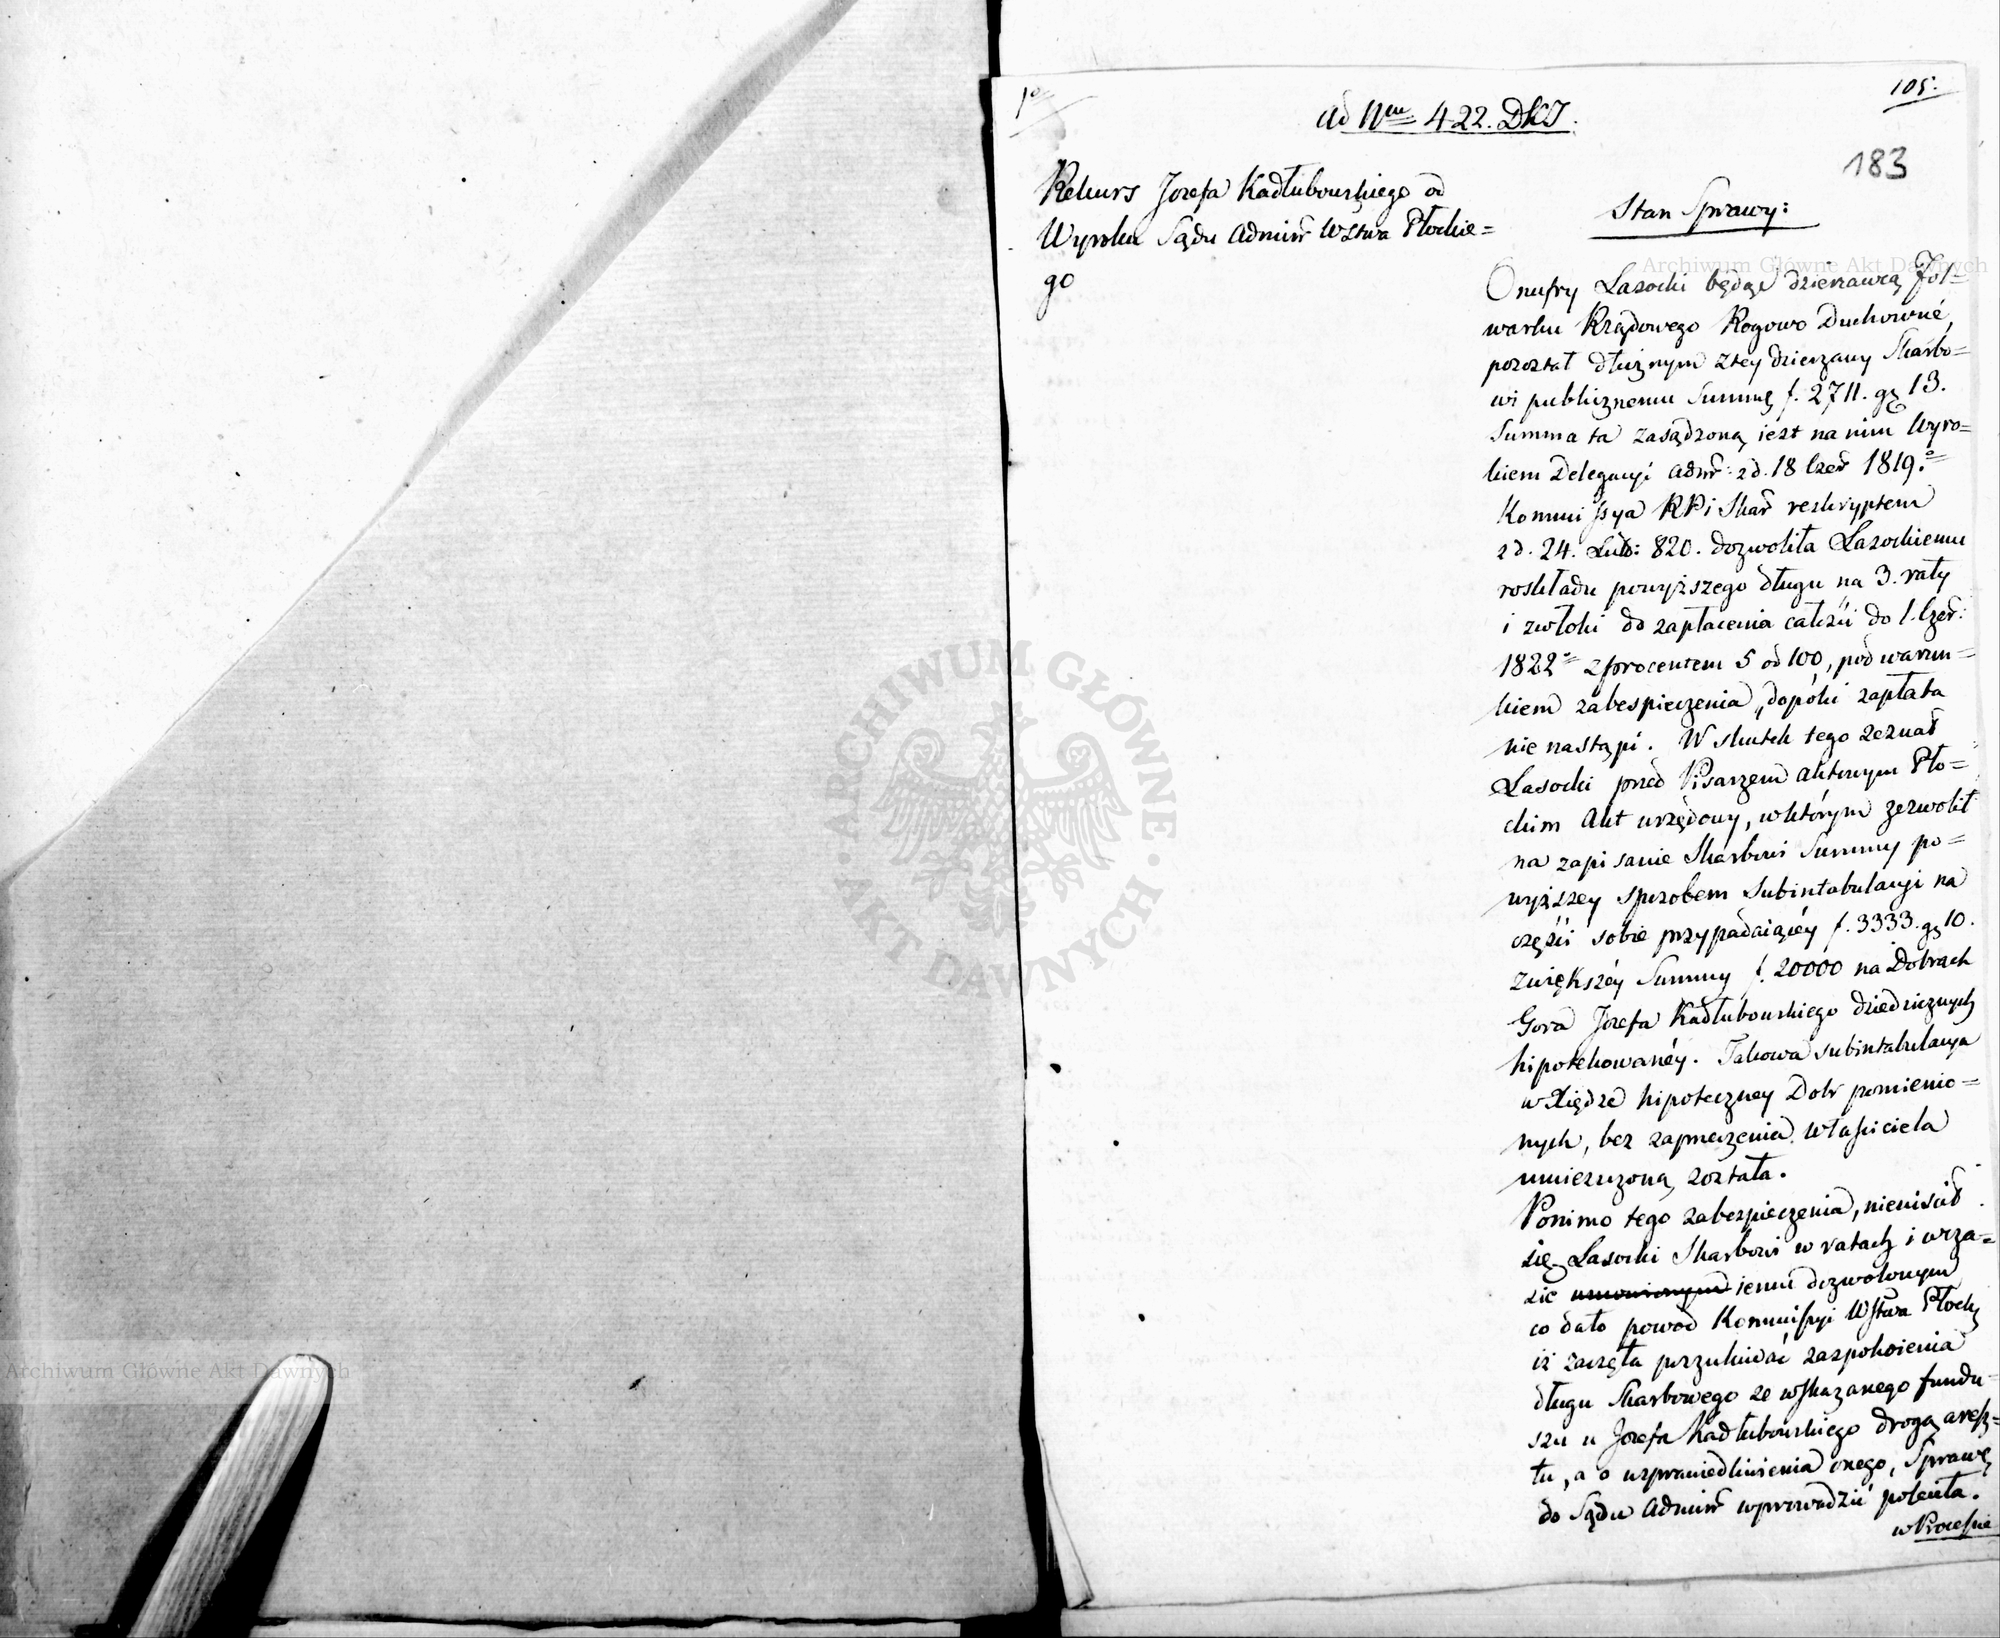 1º
105.
ad Nrm 422. DKJ.
183
Rekurs Jozefa Kadłubowskiego od
Wyroku Sądu Admin Wztwa Płockie=
go
Stan Sprawy:
Onufry Lasocki będąc dzierzawcą Fol=
warku Rządowego Rogowo Duchowné,
pozostał dłużnym z tey dzierzawy Skarbo=
wi publicznemu Summę f. 2711. gr 13.
Summa ta zasądzoną iest na nim Wyro=
kiem Delegacyi Admin: z d. 18 Czer 1819.º
Kommissya RP i Skar reskryptem
z d. 24. Lut: 820. dozwoliła Lasockiemu
roskładu powyższego długu na 3. raty
i zwłoki do zapłacenia całości do 1. Czer:
1822º z procentem 5 od 100, pod warun=
kiem zabespieczenia, dopóki zapłata
nie nastąpi. W skutek tego zeznał
Lasocki przed Pisarzem Aktowym Pło=
ckim Akt urzędowy, w którym zezwolił
na zapisanie Skarbowi Summy po=
wyższey sposobem Subintabulacyi na
części sobie przypadaiącéy f. 3333. gr 10.
z większéy Summy f. 20000 na Dobrach
Gora Jozefa Kadłubowskiego dziedzicznych
hipotekowanéy. Takowa subintabulacya
w Xiędze hipoteczney Dobr pomienio=
nych, bez zaprzeczenia Właściciela
umieszczoną została.
Pomimo tego zabezpieczenia, nieuiścił
się Lasocki Skarbowi w ratach i w cza=
sie umowionym iemu dozwolonym
co dało powod Kommissyi Wztwa Płock
iż zaczęła poszukiwać zaspokoienia
długu Skarbowego ze wskazanego fundu=
szu u Jozefa Kadłubowskiego drogą aresz=
tu, a o usprawiedliwienia onego, Sprawę
do Sądu Admin wprowadzić poleciła.
w Processie
Archiwum Główne Akt Dawnych
Archiwum Główne Akt Dawnych
ARCHIWUM GŁÓWNE
AKT DAWNYCH